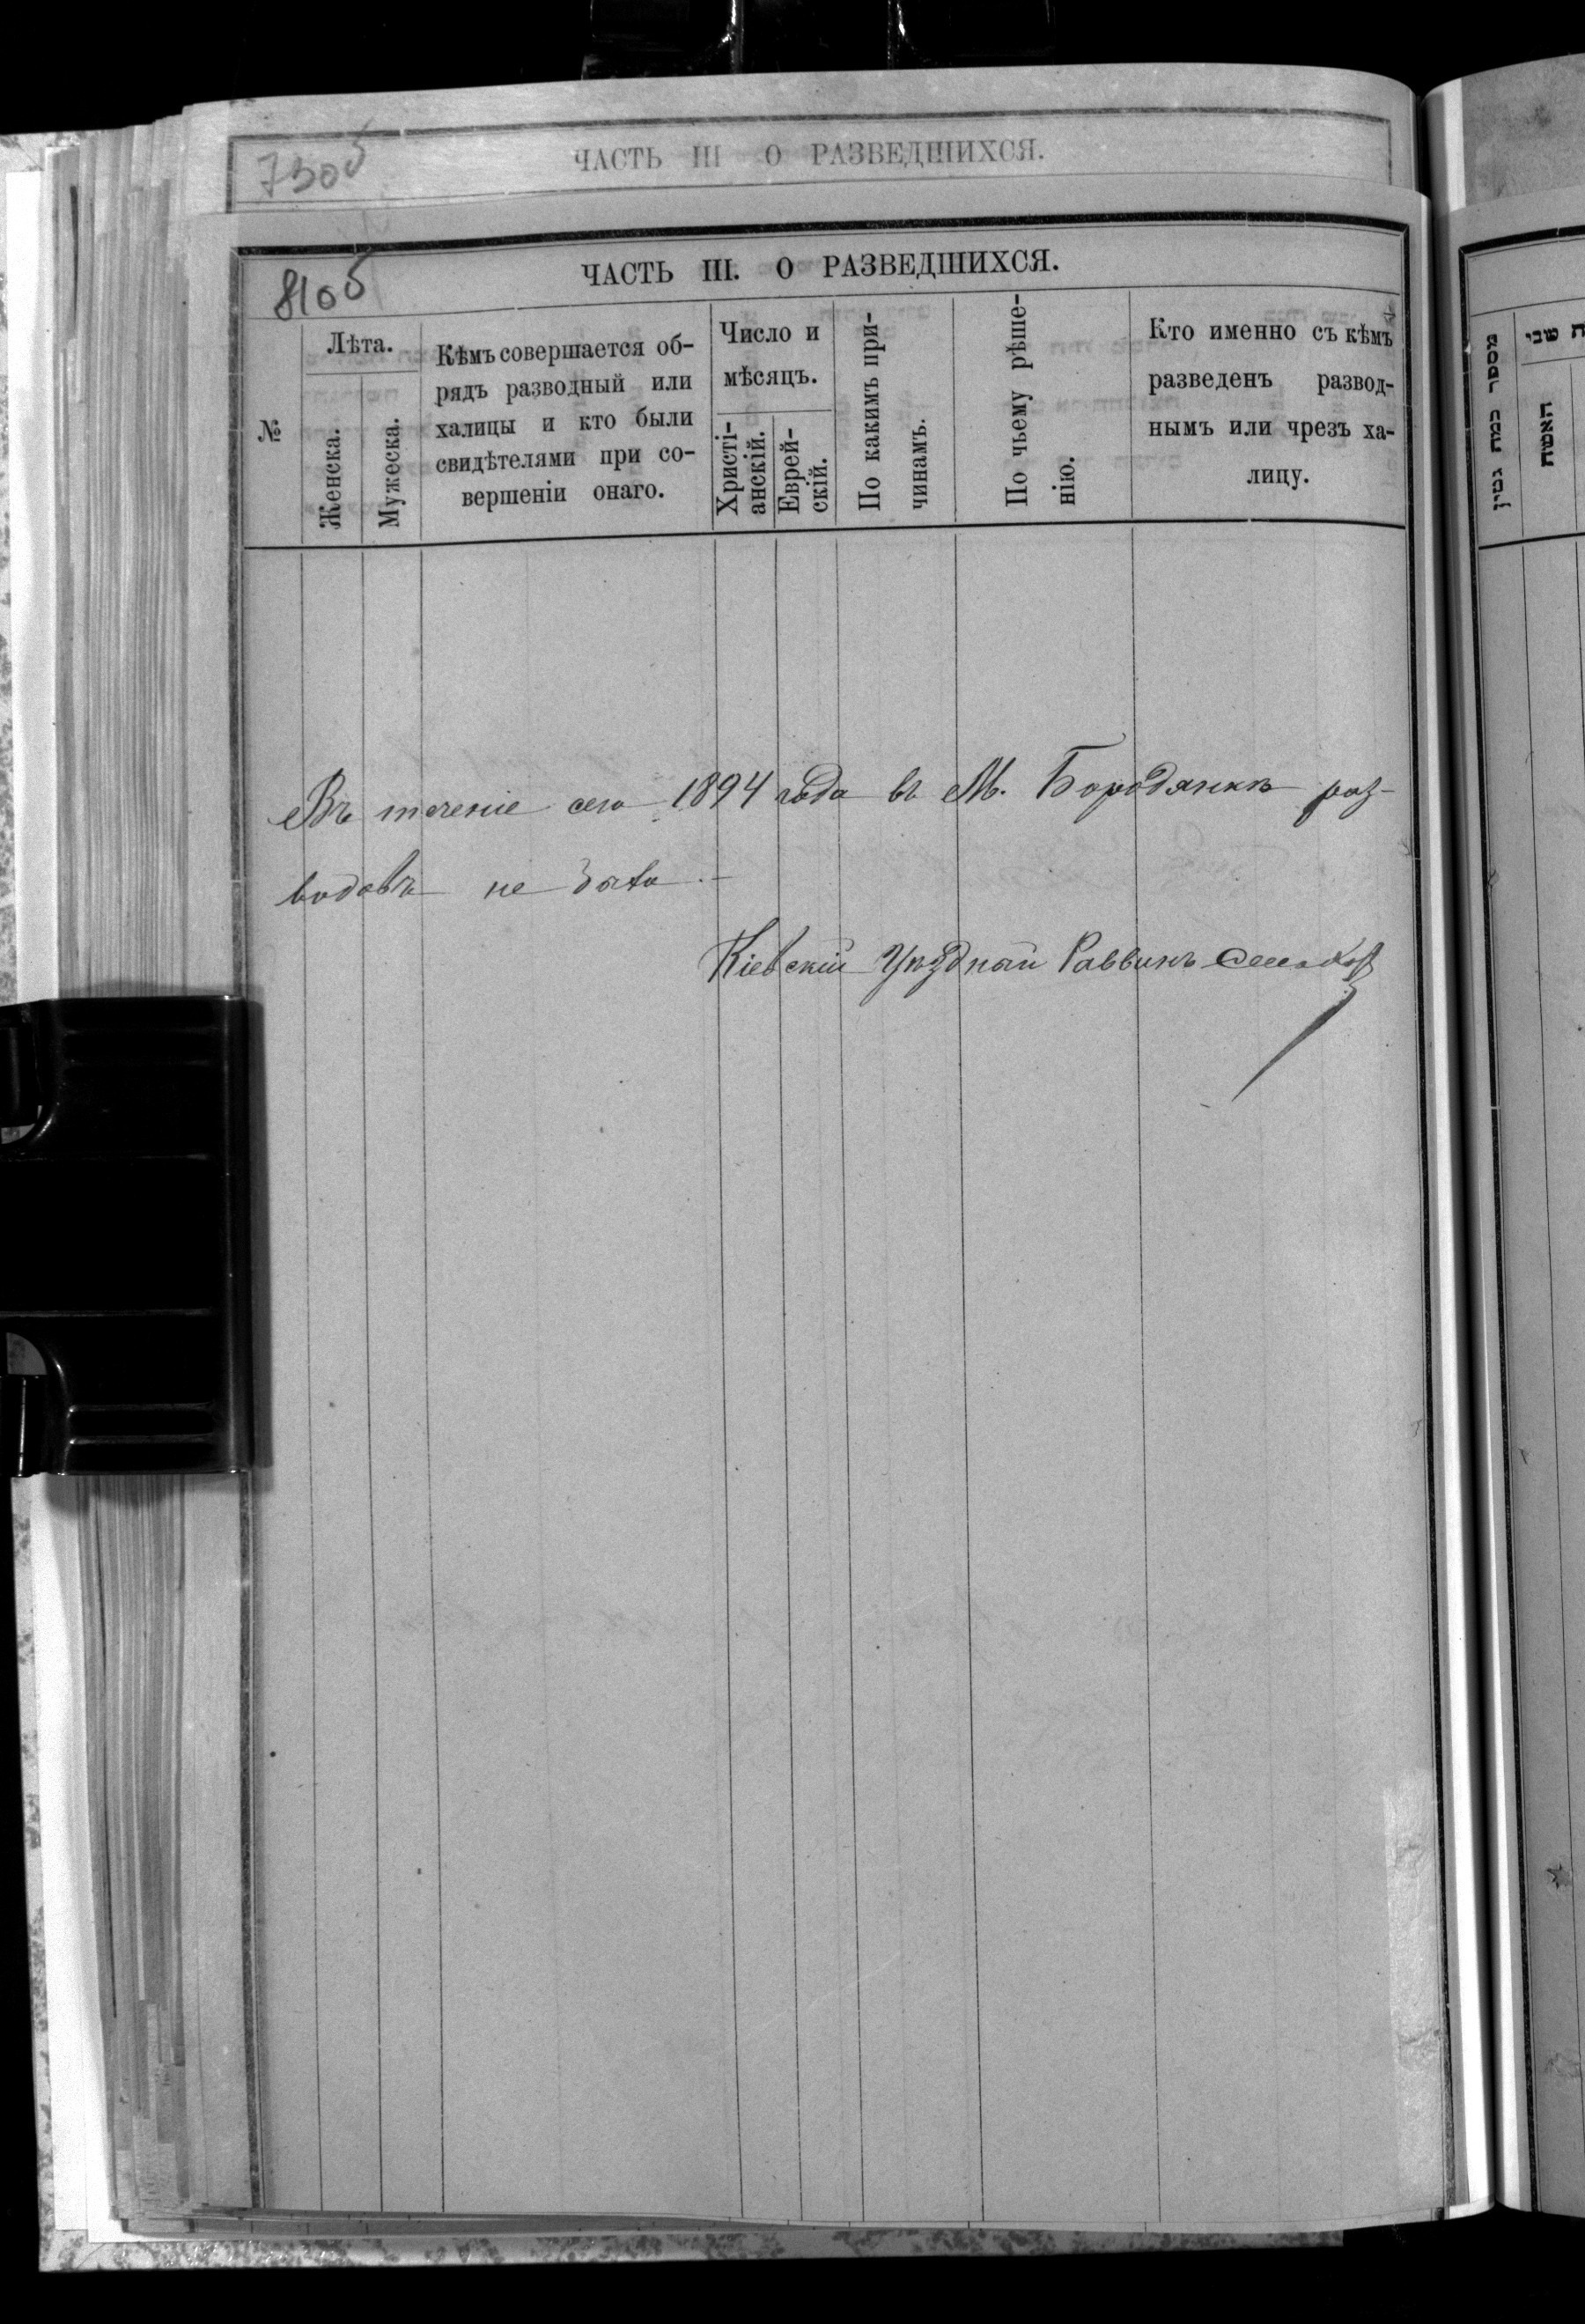 730б
ЧАСТЬ III О РАЗВЕДШИХСЯ.
810б
ЧАСТЬ III. О РАЗВЕДШИХСЯ.
№
Лѣта.
Женска.
Мужеска.
Кѣмъ совершается об-
рядъ разводный или
халицы и кто были
свидѣтелями при со-
вершеніи онаго.
Число и
мѣсяцъ.
Христі-
анскій.
Еврей-
скій.
По какимъ при-
чинамъ.
По чьему рѣше-
нію.
Кто именно съ кѣмъ
разведенъ развод-
нымъ или чрезъ ха-
лицу.
Въ теченіе сего 1894 года въ М. Бородянкѣ раз-
водовъ не было.-
Кіевскій Уѣздный Раввинъ
מספר כמה גטין
שני
האשה